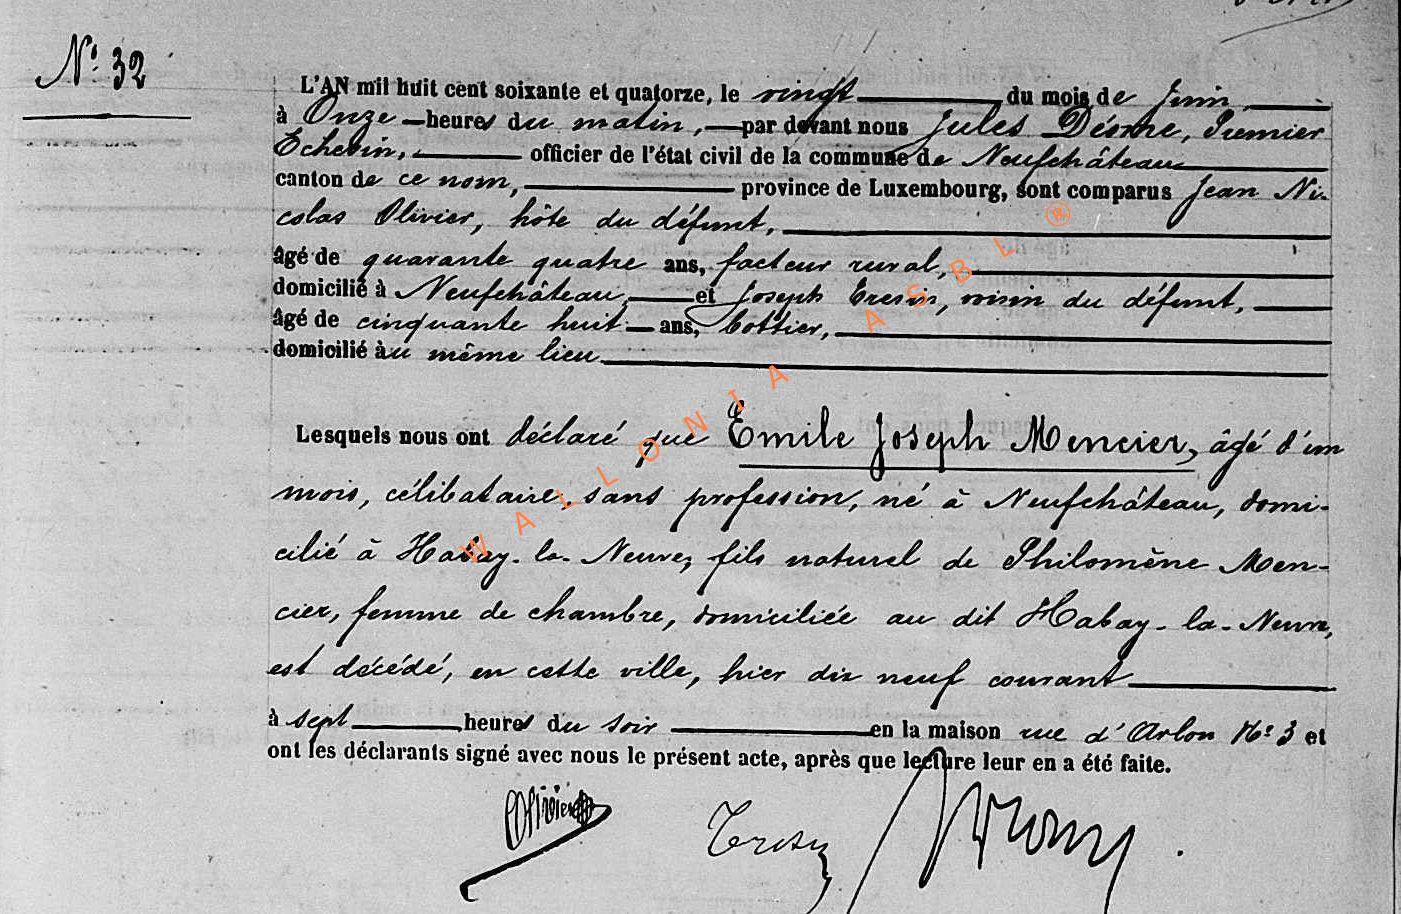 N° 32
L'AN mil huit cent soixante et quatorze, le vingt du mois de Juin
à Onze heures du matin, par devant nous Jules Désme, Premier
Echevin, officier de l'état civil de la commune de Neufchâteau
canton de ce nom, province de Luxembourg, sont comparus Jean Ni-
colas Olivier, hôte du défunt,
âgé de quarante quatre ans, facteur rural,
domicilié à Neufchâteau, et Joseph voisin du défunt,
âgé de cinquante huit ans, bottier,
domicilié au même lieu
Lesquels nous ont déclaré que Emile Joseph Mencier, âgé d'un
mois, célibataire, sans profession, né à Neufchâteau, domi-
cilié à Habay-la-Neuve, fils naturel de Philomène Men-
cier, femme de chambre, domiciliée au dit Habay-la-Neuve,
est décédé, en cette ville, hier dix neuf courant
à sept heures du soir en la maison rue d'Arlon N° 3 et
ont les déclarants signé avec nous le présent acte, après que lecture leur en a été faite.
Olivier
WALLONIA ASBL ®